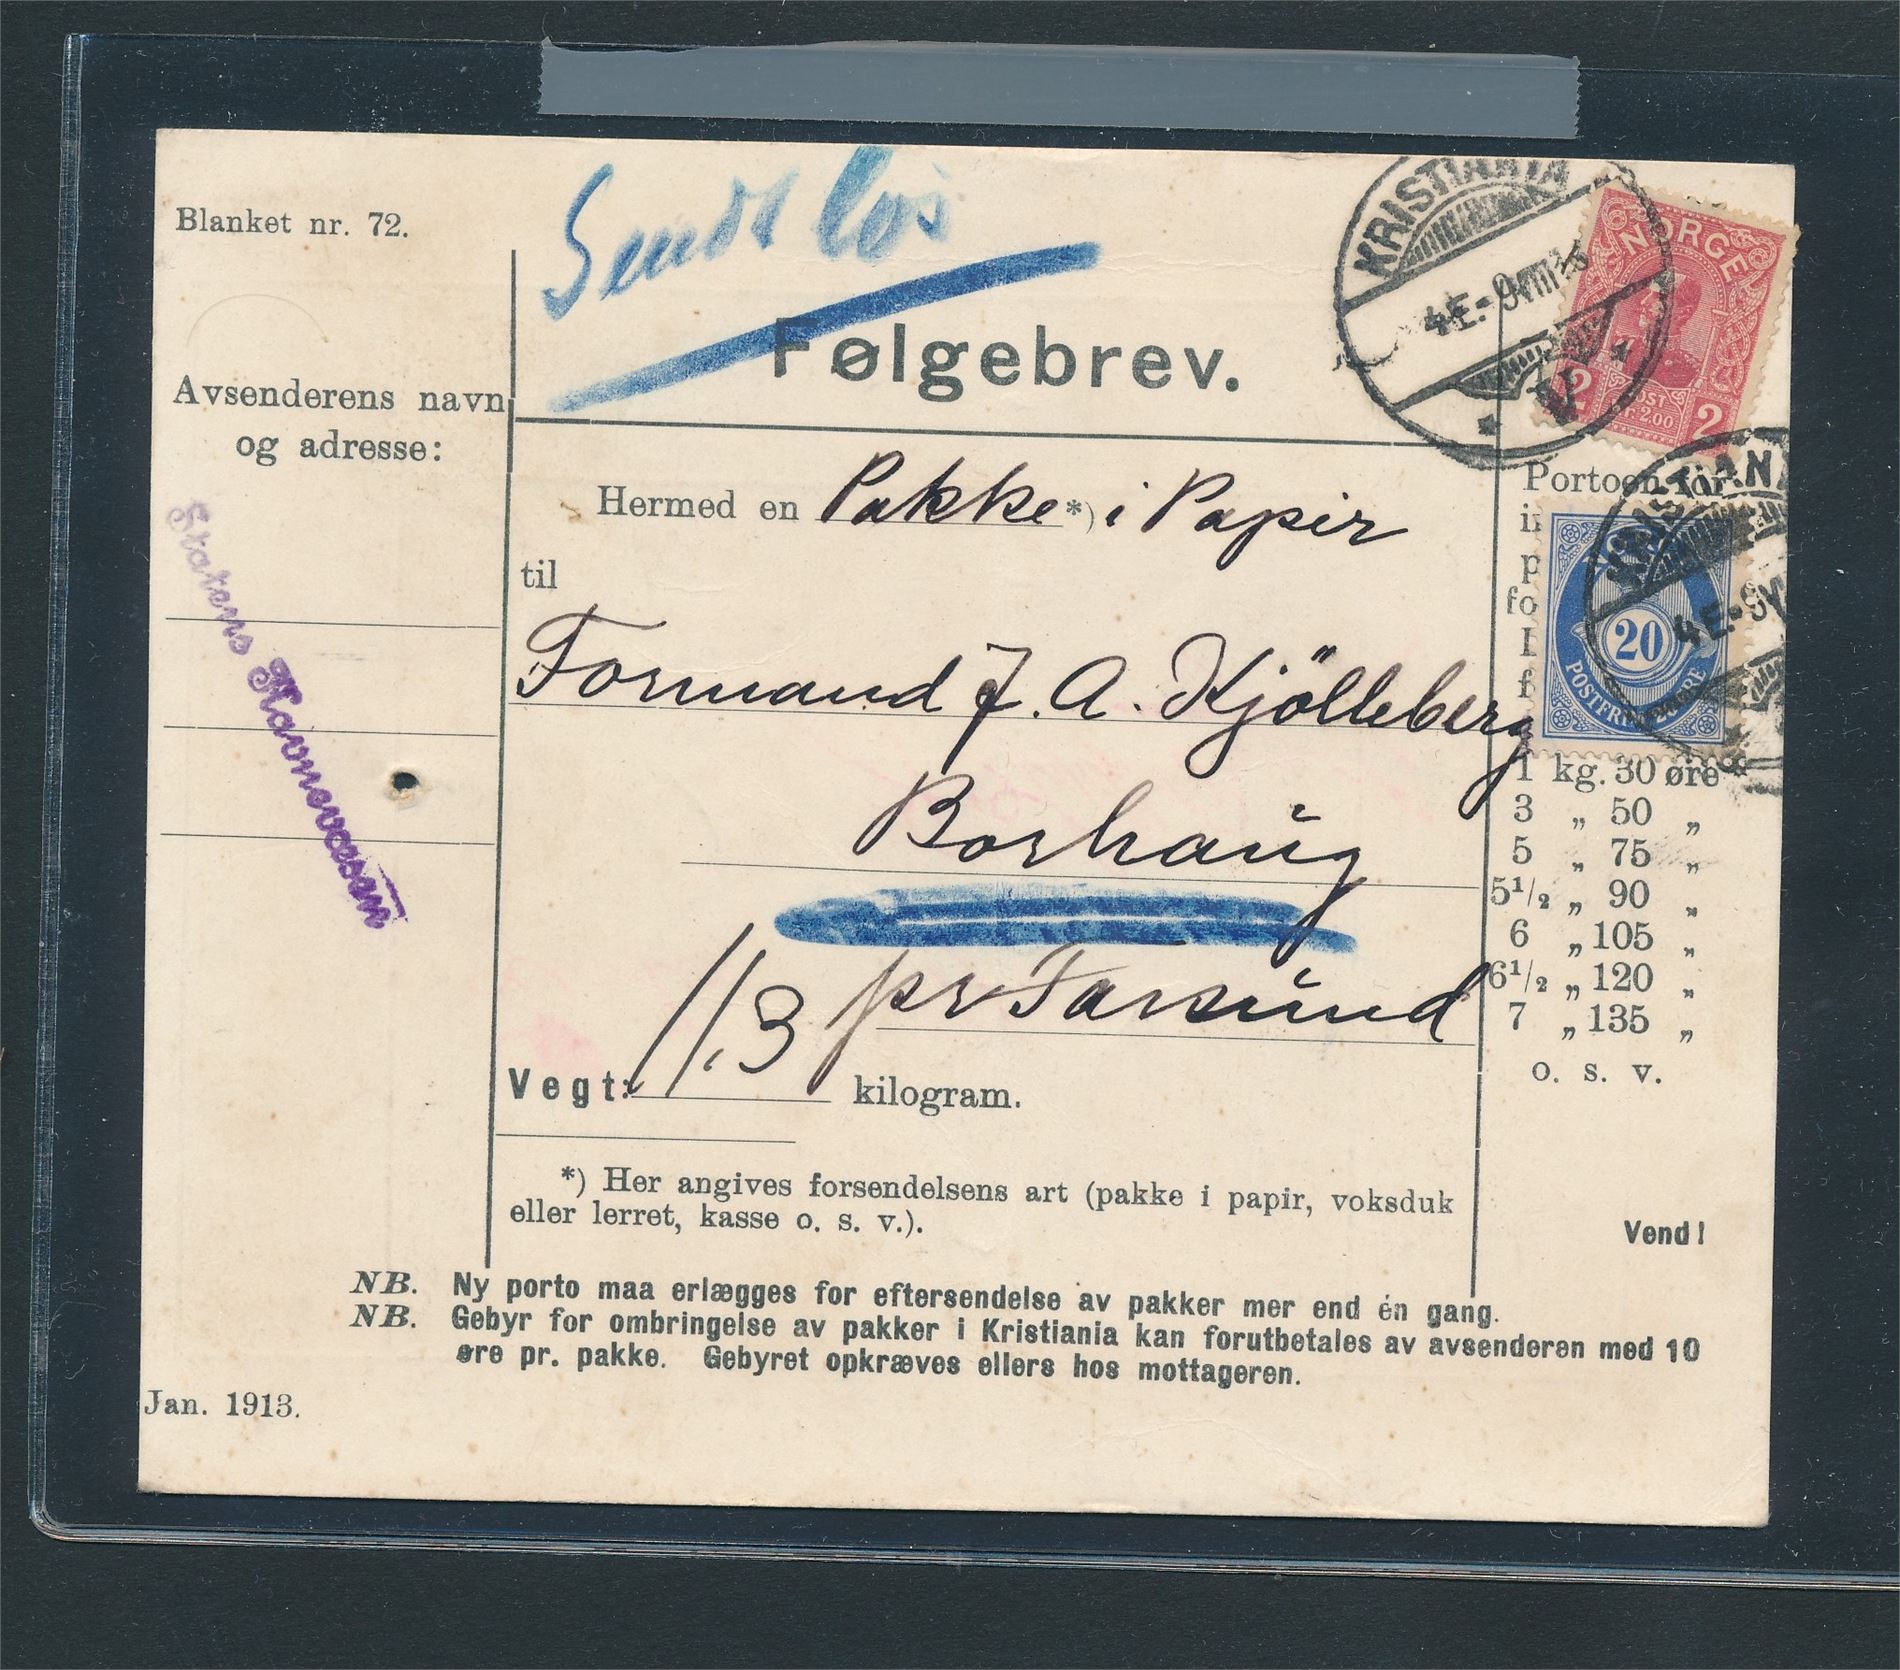 Blanket nr. 72.
Sendt løs
KRISTIANIA
4E.-9VIII13
V.
NORGE
2 POST 2
kr. 2.00
Følgebrev.
Avsenderens navn
og adresse:
Statens Havnevæsen
Hermed en Pakke*) i Papir
til
Formand J. A. Kjölleberg
Borhaug
pr Farsund
Vegt: 11.3 kilogram.
*) Her angives forsendelsens art (pakke i papir, voksduk
eller lerret, kasse o. s. v.).
Portoen for
20
KRISTIANIA
4E.-9VI
1 kg. 30 øre
3 „ 50 „
5 „ 75 „
5½ „ 90 „
6 „ 105 „
6½ „ 120 „
7 „ 135 „
o. s. v.
Vend!
NB. Ny porto maa erlægges for eftersendelse av pakker mer end én gang.
NB. Gebyr for ombringelse av pakker i Kristiania kan forutbetales av avsenderen med 10
øre pr. pakke. Gebyret opkræves ellers hos mottageren.
Jan. 1913.